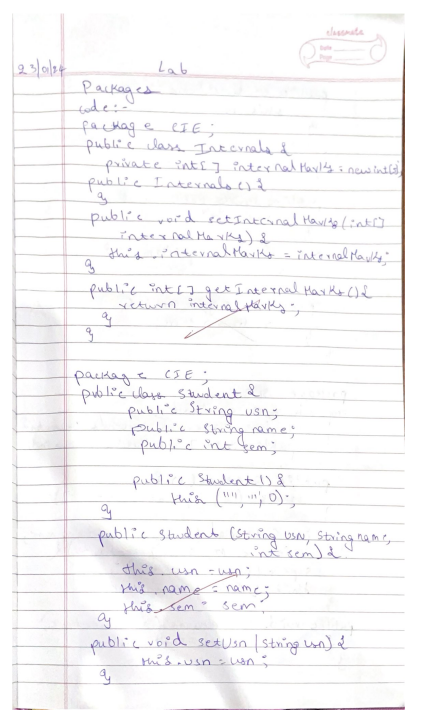 classmate
Date
Page
23/01/24 Lab
Packages
code:-
package CIE;
public class Internals {
private int[] internalMarks = new int[5];
public Internals() {
}
public void setInternalMarks(int[]
internalMarks) {
this.internalMarks = internalMarks;
}
public int[] getInternalMarks() {
return internalMarks;
}
}
package CIE;
public class Student {
public String usn;
public String name;
public int sem;
public Student() {
this ("", "", 0);
}
public Student (String usn, String name,
int sem) {
this.usn = usn;
this.name = name;
this.sem = sem;
}
public void setUsn (String usn) {
this.usn = usn;
}